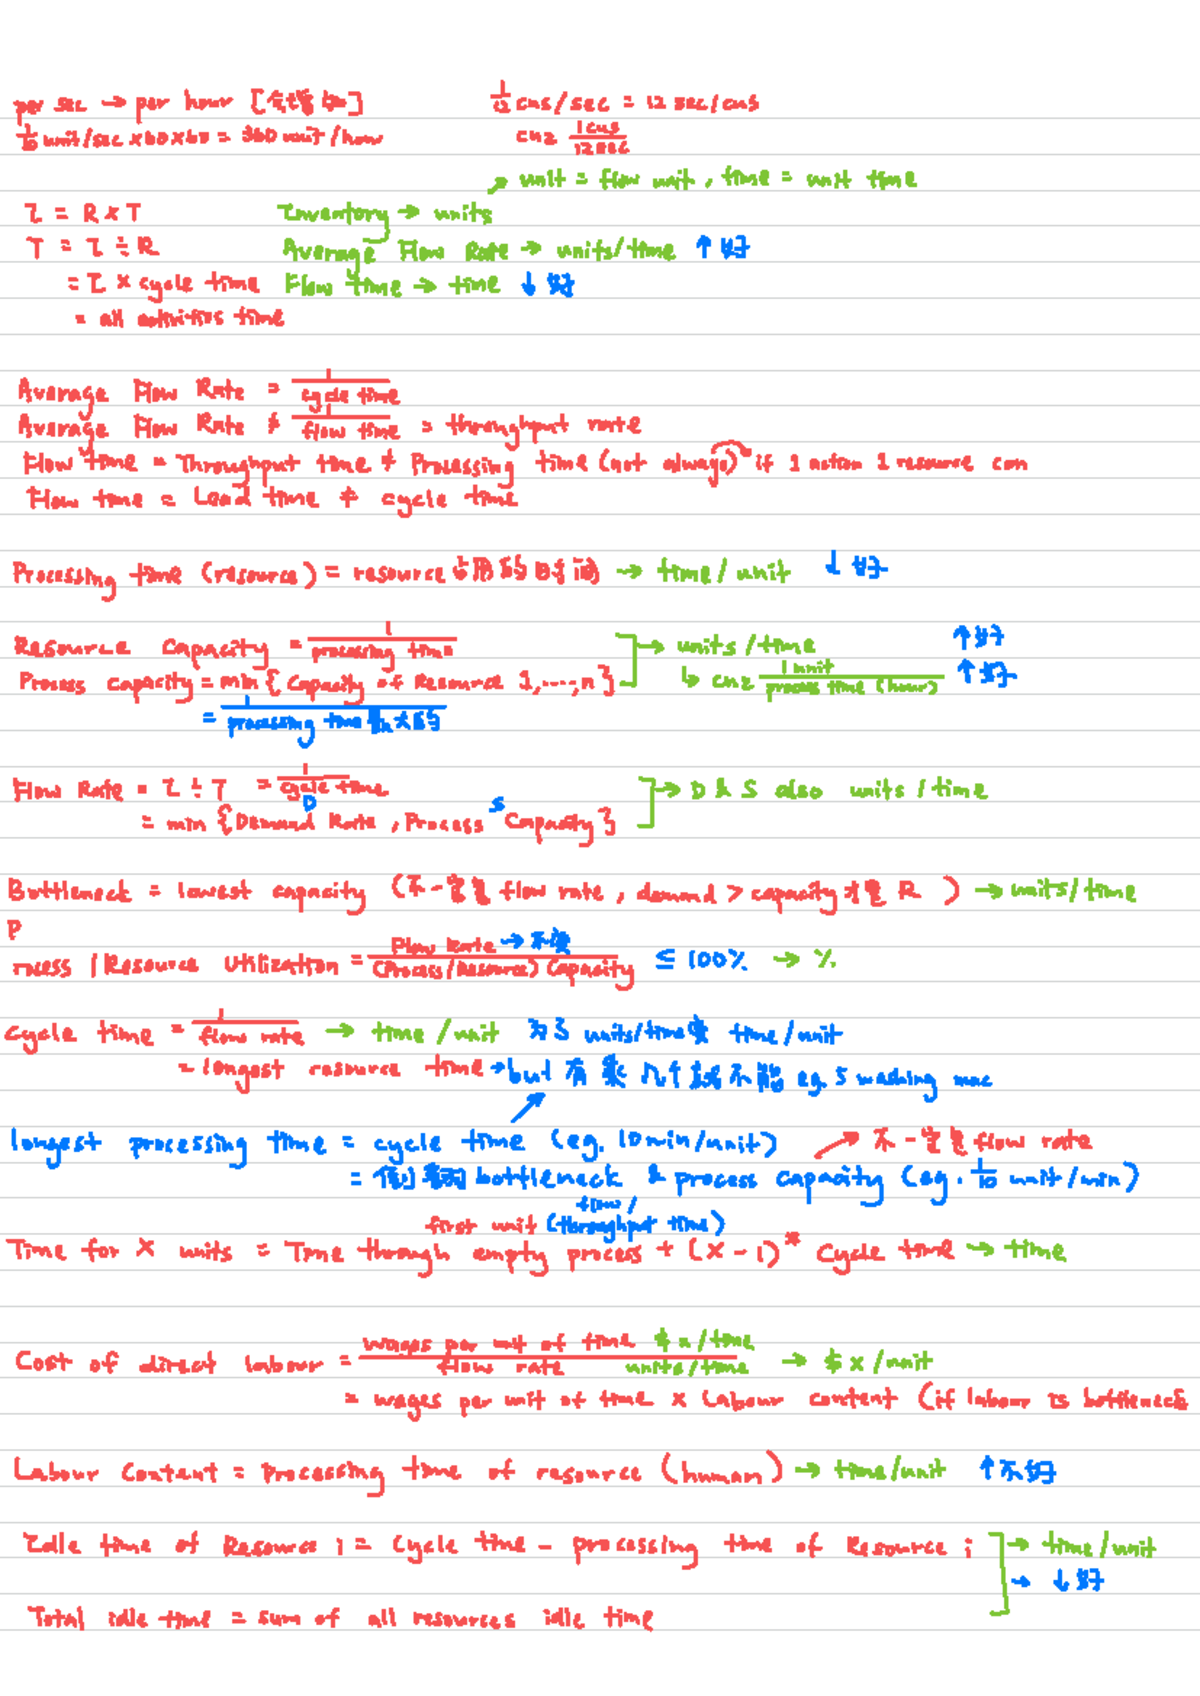 per sec → per hour [会增加] 1/12 cus/sec = 12 sec/cus
1/10 unit/sec x60x60 = 360 unit/hour cuz 1cus/12sec
↗ unit = flow unit, time = unit time
I = R x T Inventory → units
T = I ÷ R Average Flow Rate → units/time ↑好
= I x cycle time Flow time → time ↓好
= all activities time
Average Flow Rate = 1/cycle time
Average Flow Rate ≠ 1/flow time = throughput rate
Flow time = Throughput time ≠ Processing time (not always) if 1 action 1 resource can
Flow time = Lead time ≠ cycle time
Processing time (resource) = resource 占用的时间 → time/unit ↓好
Resource Capacity = 1/processing time → units/time ↑好
Process capacity = min{Capacity of Resource 1,...,n} ↳ cuz 1unit/process time (hour) ↑好
= 1/processing time最大的
Flow Rate = I ÷ T = 1/cycle time → D & S also units/time
D S
= min {Demand Rate, Process Capacity}
Bottleneck = lowest capacity (不一定是 flow rate, demand > capacity才是 R ) → units/time
P
rocess / Resource Utilization = Flow Rate → 不变/(Process/Resource) Capacity ≤ 100% → %
cycle time = 1/flow rate → time/unit 为了 units/time变 time/unit
= longest resource time → but 有乘几个就不能 eg. 5 washing mac
longest processing time = cycle time (eg. 10min/unit) ↗ 不一定是flow rate
= bottleneck & process capacity (eg. 1/10 unit/min)
flow/
first unit (throughput time)
Time for X units = Time through empty process + (X - 1) * Cycle time → time
Cost of direct labour = wages per unit of time $x/time / flow rate units/time → $x/unit
= wages per unit of time x Labour content (if labour is bottleneck
Labour Content = processing time of resource (human) → time/unit ↑不好
Idle time of Resource i = Cycle time - processing time of Resource i → time/unit
→ ↓好
Total idle time = sum of all resources idle time